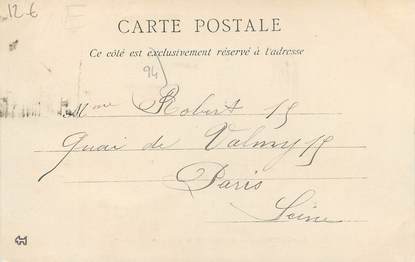 12-6
E
CARTE POSTALE
Ce côté est exclusivement réservé à l'adresse
94
Mme Robert 15
Quai de Valmy 15
Paris
Seine